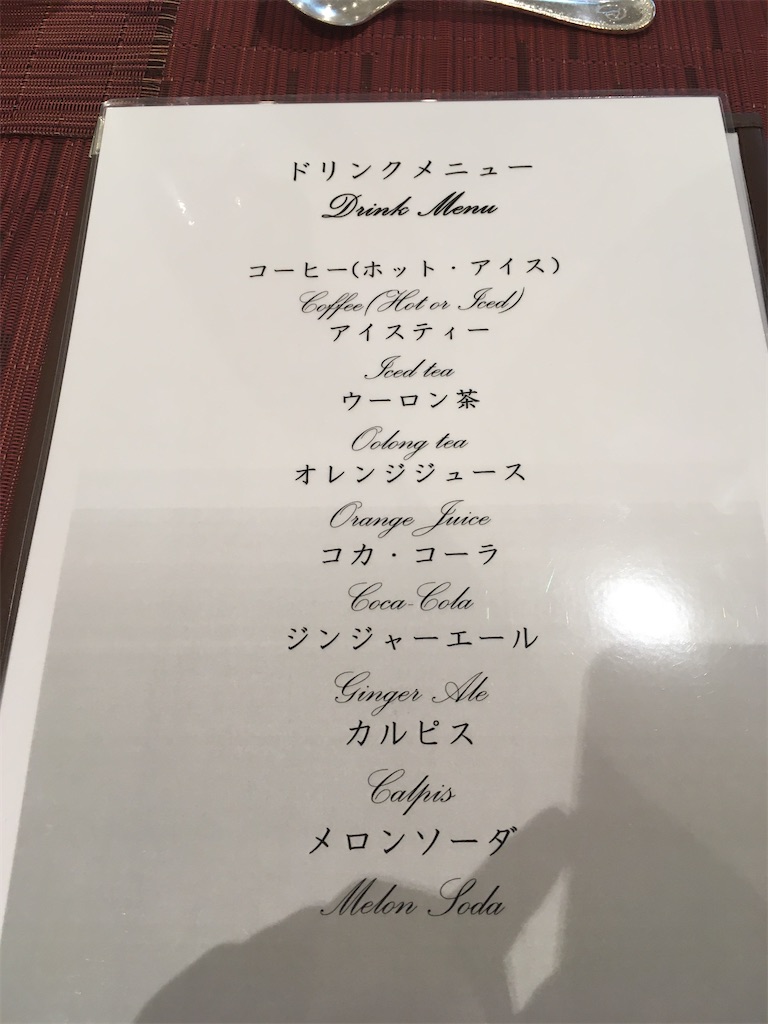 ドリンクメニュー
Drink Menu
コーヒー(ホット・アイス)
Coffee(Hot or Iced)
アイスティー
Iced tea
ウーロン茶
Oolong tea
オレンジジュース
Orange Juice
コカ・コーラ
Coca-Cola
ジンジャーエール
Ginger Ale
カルピス
Calpis
メロンソーダ
Melon Soda